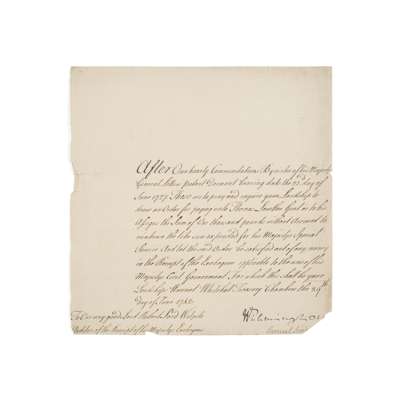 After Our hearty Commendations By virtue of his Majestys
General Letters patent Dormant bearing date the 23d day of
June 1727 These are to pray and require your Lordship to
draw an Order for paying unto
Assigns the Sum of One thousand pounds without Account to
for his Majestys Special
Service And let the said Order be satisfied out of any money
in the Receipt of the Exchequer applicable to the uses of his
Majestys Civil Government, For which this shall be your
Lordships Warrant Whitehall Treasury Chambers the 29th
day of June 1742
To Our very good Lord Robert Lord Walpole
of the Receipt of his Majestys Exchequer
Wilmington